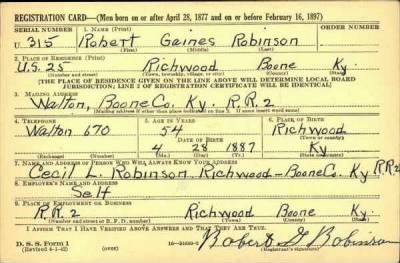 REGISTRATION CARD—(Men born on or after April 28, 1877 and on or before February 16, 1897)
SERIAL NUMBER 1. NAME (Print) ORDER NUMBER
U 315 Robert Gaines Robinson
(First) (Middle) (Last)
2. PLACE OF RESIDENCE (Print)
U.S. 25 Richwood Boone Ky.
(Number and street) (Town, township, village, or city) (County) (State)
[THE PLACE OF RESIDENCE GIVEN ON THE LINE ABOVE WILL DETERMINE LOCAL BOARD
JURISDICTION; LINE 2 OF REGISTRATION CERTIFICATE WILL BE IDENTICAL]
3. MAILING ADDRESS
Walton, Boone Co. Ky. R.R. 2
[Mailing address if other than place indicated on line 2. If same insert word same]
4. TELEPHONE 5. AGE IN YEARS 6. PLACE OF BIRTH
Walton 670 54 Richwood
DATE OF BIRTH (Town or county)
4 28 1887 Ky
(Exchange) (Number) (Mo.) (Day) (Yr.) (State or country)
7. NAME AND ADDRESS OF PERSON WHO WILL ALWAYS KNOW YOUR ADDRESS
Cecil L. Robinson, Richwood - Boone Co. Ky RR2
8. EMPLOYER'S NAME AND ADDRESS
Self
9. PLACE OF EMPLOYMENT OR BUSINESS
R.R. 2 Richwood Boone Ky.
(Number and street or R. F. D. number) (Town) (County) (State)
I AFFIRM THAT I HAVE VERIFIED ABOVE ANSWERS AND THAT THEY ARE TRUE.
D. S. S. Form 1
(Revised 4-1-42) (over) Robert G Robinson
(Registrant's signature)